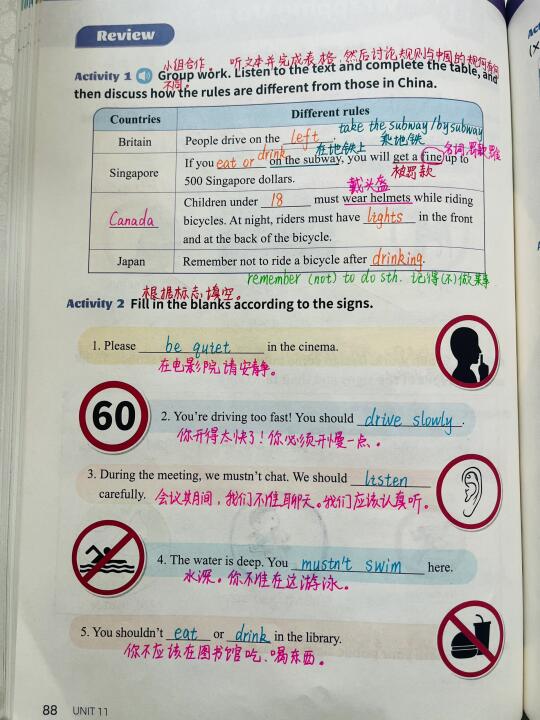 Review
小组合作。听文本并完成表格，然后讨论规则与中国的规则有何
不同。
Activity 1 Group work. Listen to the text and complete the table, and
then discuss how the rules are different from those in China.
Countries Different rules
take the subway / by subway
Britain People drive on the left.
在地铁上 乘地铁 名词，罚款
Singapore If you eat or drink on the subway, you will get a fine up to
500 Singapore dollars. 被罚款
戴头盔
Children under 18 must wear helmets while riding
Canada bicycles. At night, riders must have lights in the front
and at the back of the bicycle.
Japan Remember not to ride a bicycle after drinking.
remember (not) to do sth. 记得(不)做某事
根据标志填空。
Activity 2 Fill in the blanks according to the signs.
1. Please be quiet in the cinema.
在电影院请安静。
60
2. You're driving too fast! You should drive slowly.
你开得太快了！你必须开慢一点。
3. During the meeting, we mustn't chat. We should listen
carefully. 会议期间，我们不准聊天。我们应该认真听。
4. The water is deep. You mustn't swim here.
水深。你不准在这游泳。
5. You shouldn't eat or drink in the library.
你不应该在图书馆吃、喝东西。
88 UNIT 11